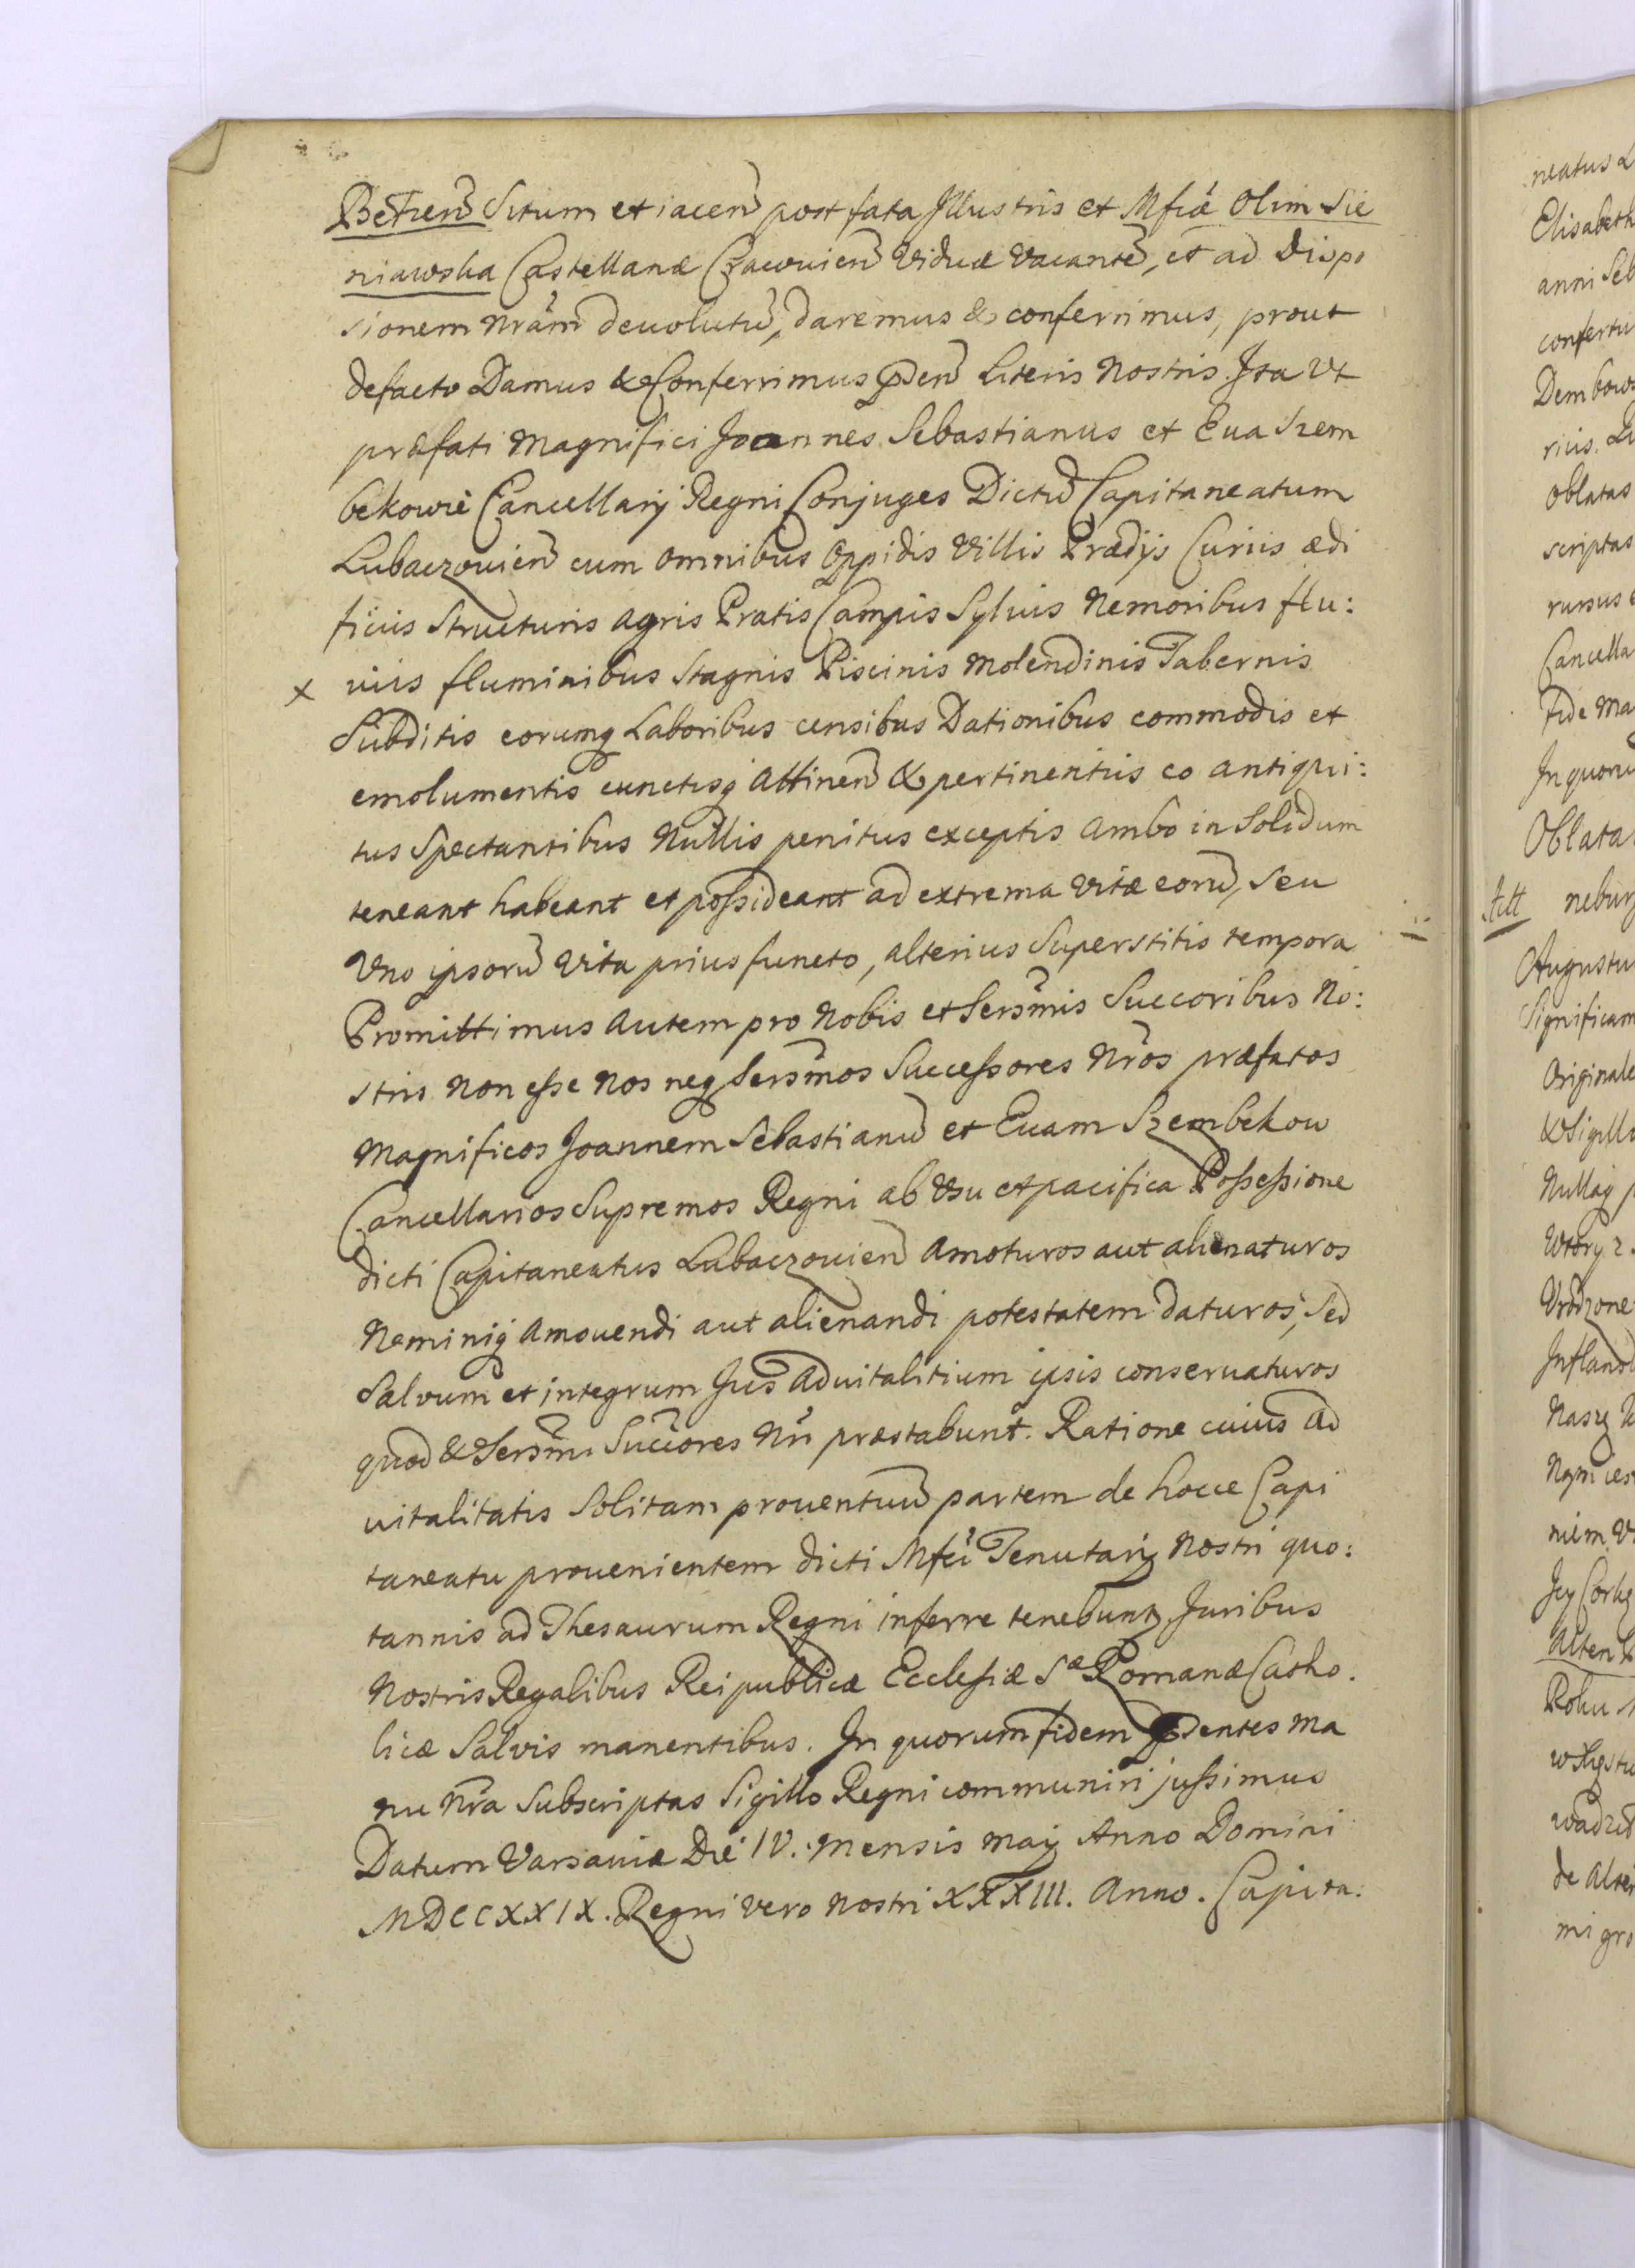 Betzen Situm et iacen post fata Illustris et Mfcæ Olim Sie
niawska Castellanæ Cracouien Viduæ Vacante, et ad Dispo
sionem Nram deuolutu, daremus & conferrimus, prout
defacto Damus & Conferrimus pnden Literis Nostris Ita Vt
præfati Magnifici Joannes Sebastianus et Eua Szem
bekowie Cancellarij Regni Conjuges Dictu Capitaneatum
Lubaczouien cum omnibus Oppidis Villis Prædijs Curiis ædi
ficiis Structuris agris Pratis Campis Syluis Nemoribus flu:
x uiis fluminibus Stagnis Piscinis Molendinis Tabernis
Subditis eorumq Laboribus censibus Dationibus commodis et
emolumentis cunctisq Attinen & pertinentiis eo antiqui:
tus Spectantibus Nullis penitus exceptis ambo in Solidum
teneant habeant et possideant ad extrema Vitæ eoru, seu
Vno ipsoru Vita prius functo, alterius Superstitis tempora
Promittimus autem pro Nobis et Sersmis Succoribus No:
stris Non esse Nos neq Sersmos Successores Nros præfatos
Magnificos Joannem Sebastianu et Euam Szembekow
Cancellarios Supremos Regni ab Vsu et pacifica Possessione
dicti Capitaneatus Lubaczouien Amoturos aut alienaturos
Neminiq Amouendi aut alienandi potestatem daturos, Sed
Salvum et integrum Jus Aduitalitium ipsis conseruaturos
quod & Sersmi Succores Nri præstabunt. Ratione cuius Ad
uitalitatis Solitam prouentuu partem de hocce Capi
taneatu prouenientem dicti Mfci Tenutarij Nostri quo:
tannis ad Thesaurum Regni inferre tenebuntr Juribus
Nostris Regalibus Reipublicæ Ecclesiæ Sæ Romanæ Catho.
licæ Salvis manentibus. In quorum fidem pndentes Ma
nu Nra Subscriptas Sigillo Regni communiri jussimus
Datum Varsauiæ Die IV. Mensis Maij Anno Domini
MDCCXXIX. Regni Vero Nostri XXXIII. Anno. Capita:
neatus
Elisabeth
anni Seb
confertu
Dembows
oblatas
scriptas
rursus
Cancella
fide Ma
In quoru
Oblata
Augustu
Significam
Originale
& Sigillo
Nullaq
Vrodzone
Infland
Naszę
de Alte
mi gro